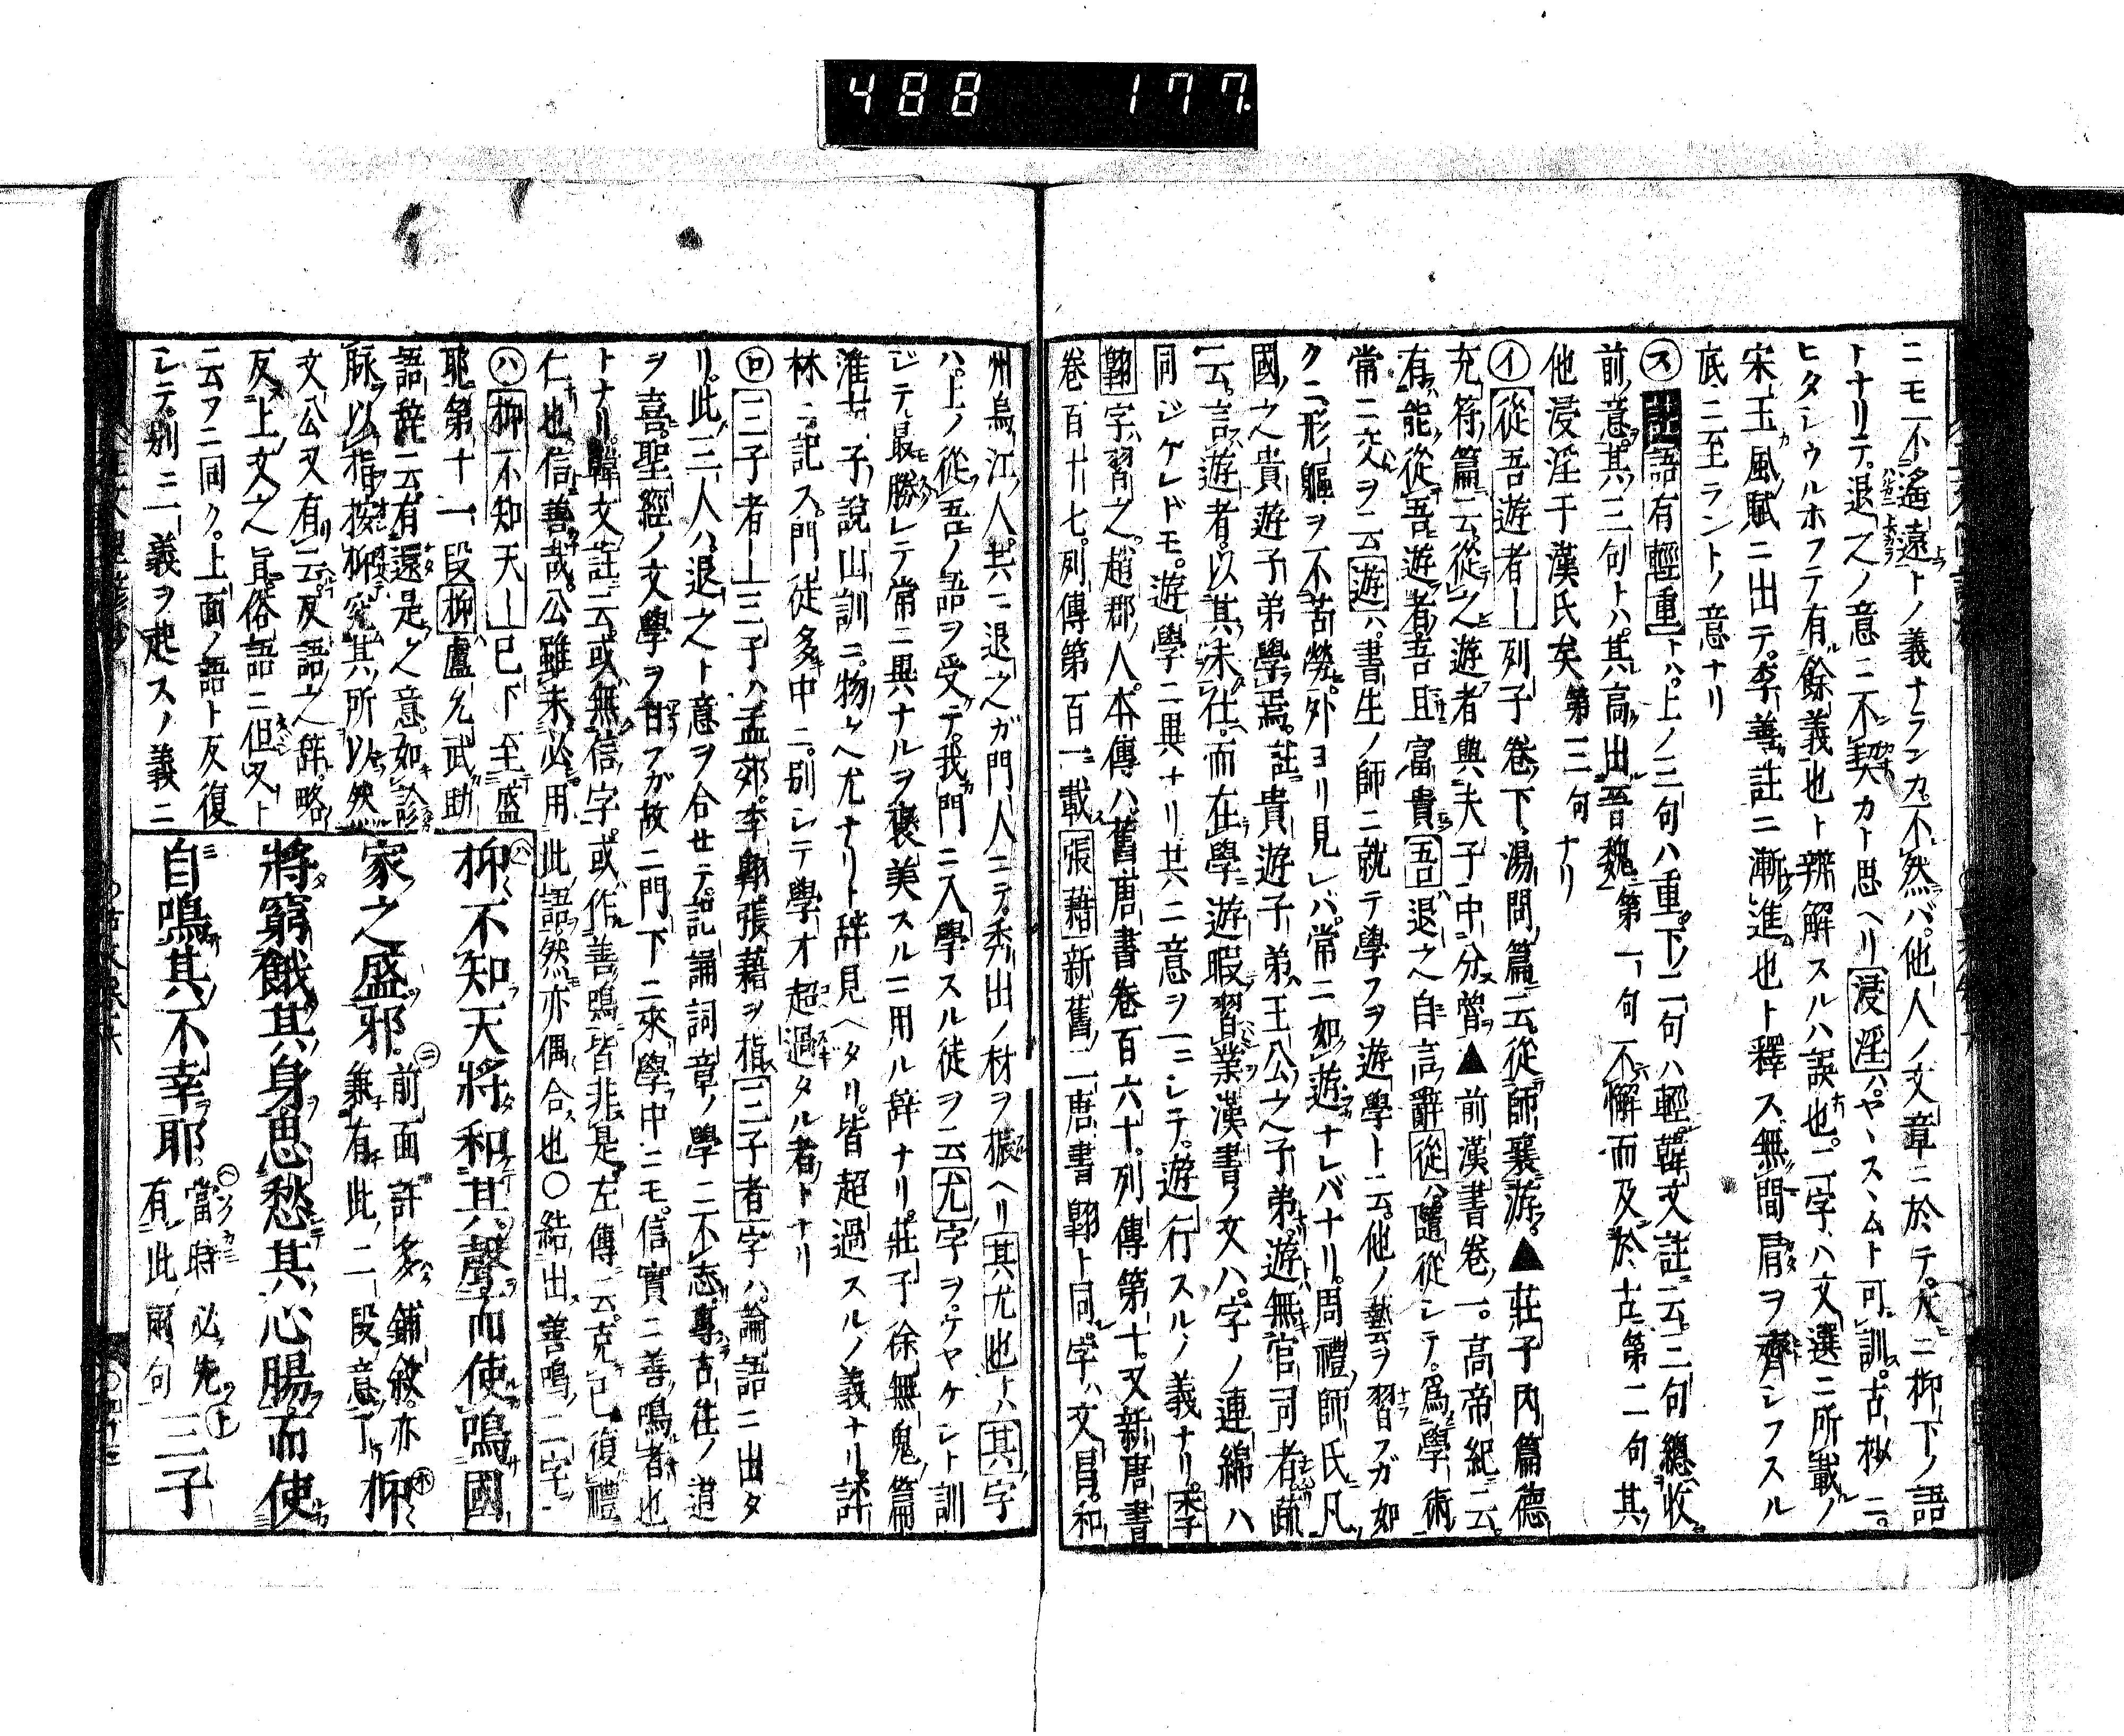 488 177
ニモ不遙遠トノ義ナランカ不然バ他人ノ文章ニ於テ大ニ抑下ノ語
トナリテ退之ノ意ニ不契カト思ヘリ浸淫ハヤヽスヽムト可訓古抄ニ
ヒタシウルホフテ有餘義也ト辨解スルハ誤也二字ハ文選ニ所載ノ
宋玉風賦ニ出テ李善註ニ漸進也ト釋ス無間肩ヲ齊シフスル
底ニ至ラントノ意ナリ
ス 語有輕重トハ上ノ三句ハ重下ノ二句ハ輕韓文註云三句總收
前意其三句トハ其高出晋魏第一句不懈而及於古第二句其
他浸淫于漢氏矣第三句ナリ
イ 從吾遊者― 列子卷下湯問篇云從師襄游▲莊子內篇德
充符篇云從之遊者與夫子中分魯▲前漢書卷一高帝紀云
有能從吾遊者吾且富貴吾退之自言辭從ハ隨從シテ爲學術
常ニ交ヲ云遊ハ書生ノ師ニ就テ學フヲ遊學ト云他ノ藝ヲ習フガ如
クニ形軀ヲ不苦勞外ヨリ見レバ常ニ如遊ナレバナリ周禮師氏凡
國之貴遊子弟學焉註貴遊子弟王公之子弟遊無官司者疏
云言遊者以其未仕而在學遊暇習業漢書ノ文ハ字ノ連綿ハ
同ジケレドモ遊學ニ異ナリ共ニ意ヲ一ニシテ遊行スルノ義ナリ李
翺字習之趙郡人本傳ハ舊唐書卷百六十列傳第十又新唐書
卷百十七列傳第百一載張藉新舊二唐書翺ト同字文昌和
州烏江人共ニ退之ガ門人ニテ秀出ノ材ヲ振ヘリ其尤也トハ其字
ハ上ノ從吾ノ語ヲ受テ我門ニ入學スル徒ヲ云尤字ヲケヤケシト訓
ジテ最勝レテ常ニ異ナルヲ褒美スルニ用ル辞ナリ莊子徐無鬼篇
淮南子說山訓ニ物之尤ナリト辞見ヘタリ皆超過スルノ義ナリ
林ニ記ス門徒多中ニ別シテ學才超過タル者トナリ
ロ 三子者― 三子ハ孟郊李翺張藉ヲ指三子者字ハ論語ニ出タ
リ此三人ハ退之ト意ヲ合セテ記誦詞章ノ學ニ不志專古往ノ道
ヲ喜聖經ノ文學ヲ甘フガ故ニ門下ニ來學中ニモ信實ニ善鳴者也
トナリ韓文註云或無信字或作善鳴皆非是左傳云克己復禮
仁也信善哉公雖未必用此語然亦偶合也○結出善鳴二字
ハ 抑不知天― 已下至盛
耶第十一段抑盧允武助
語辞云有還是之意如診
脉以指按抑究其所以然
文公又有云反語之辞略
反上文之旨俗語ニ但又ト
云フニ同ク上面ノ語ト反復
シテ別ニ一義ヲ起スノ義ニ
抑不知天將和其聲而使鳴國
家之盛邪 前面許多鋪敘亦兼有此二段意了 抑
將窮餓其身思愁其心腸而使
自鳴其不幸耶 當時必先有此兩句 三子